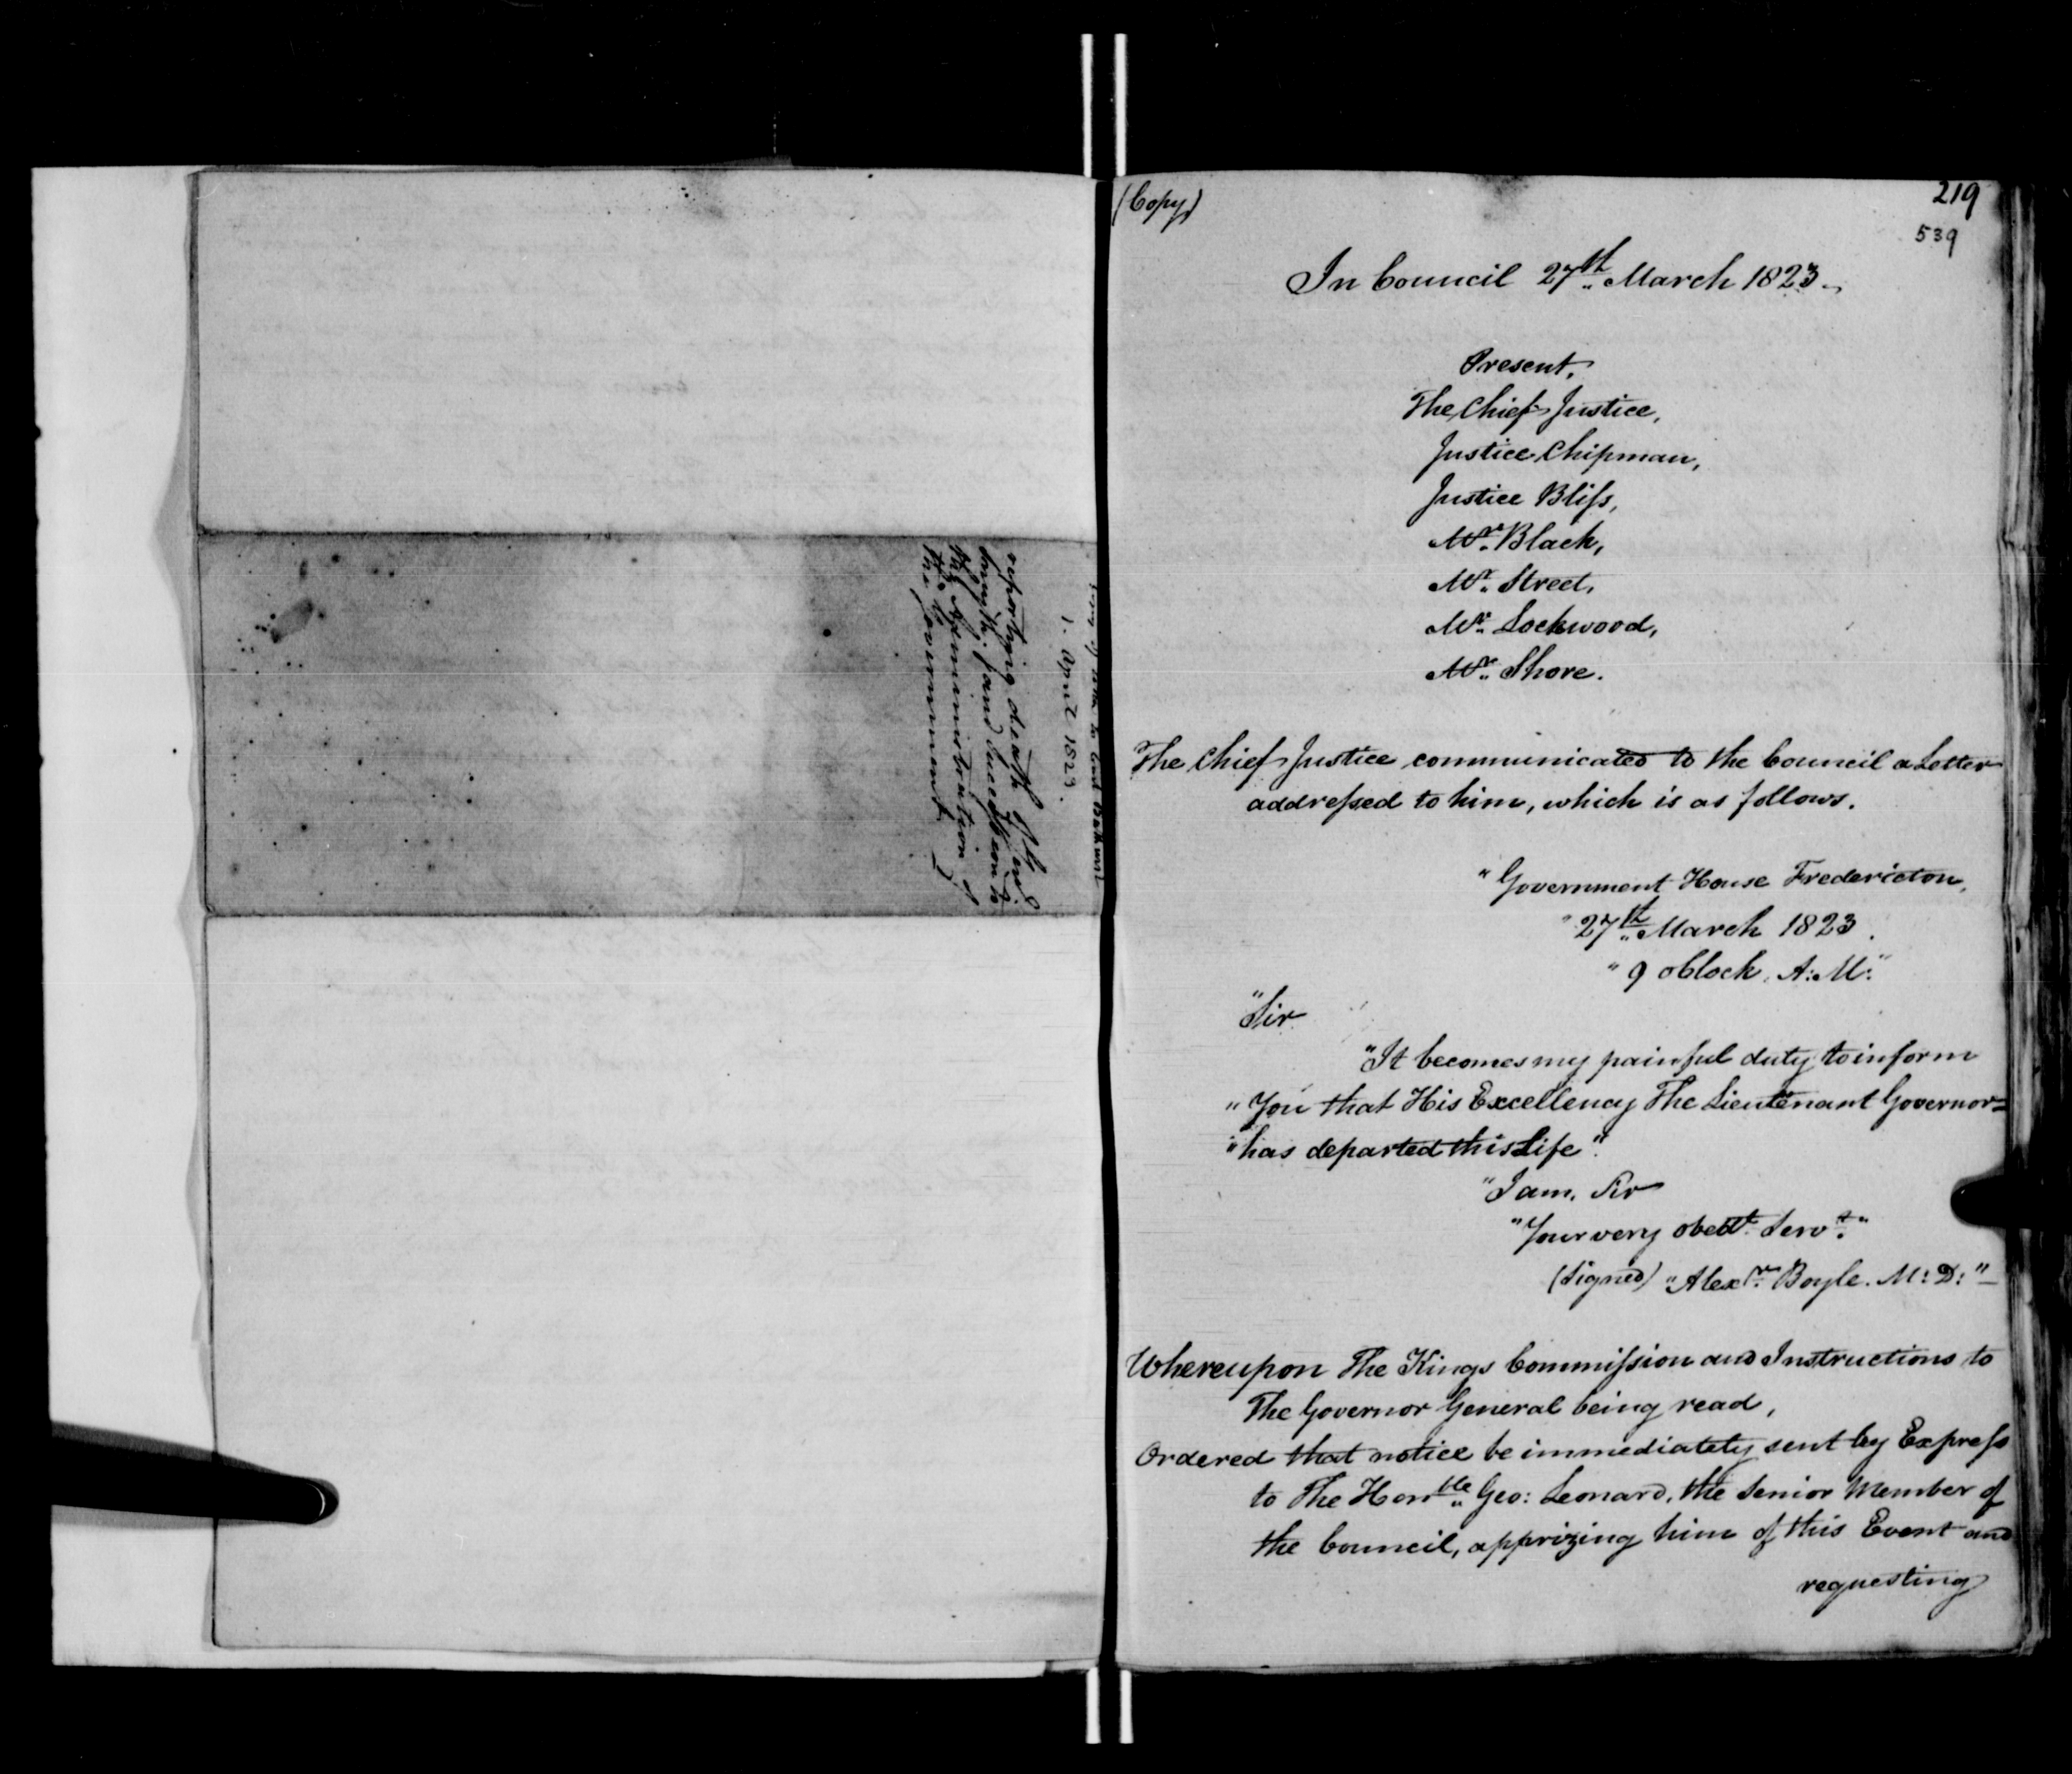 1. April 1823.
reporting death of Gen.l
Smyth. and succession to
the administration of
the Government
(Copy)
219
539
In Council 27th March 1823
Present,
The Chief Justice,
Justice Chipman,
Justice Bliſs,
Mr. Black,
Mr. Street,
Mr. Lockwood,
Mr. Shore.
The Chief Justice communicated to the Council a Letter
addreſsed to him, which is as follows.
"Government House Fredericton,
"27th March 1823.
"9 oClock. A:M:"
"Sir
"It becomes my painful duty to inform
"You that His Excellency The Lieutenant Governor
"has departed this Life".
"I am, Sir
"Your very obedt. Servt."
(Signed) "Alexr. Boyle. M:D:"
Whereupon The Kings Commiſsion and Instructions to
The Governor General being read,
Ordered that notice be immediately sent by Expreſs
to The Honble Geo: Leonard, the Senior Member of
the Council, apprizing him of this Event and
requesting